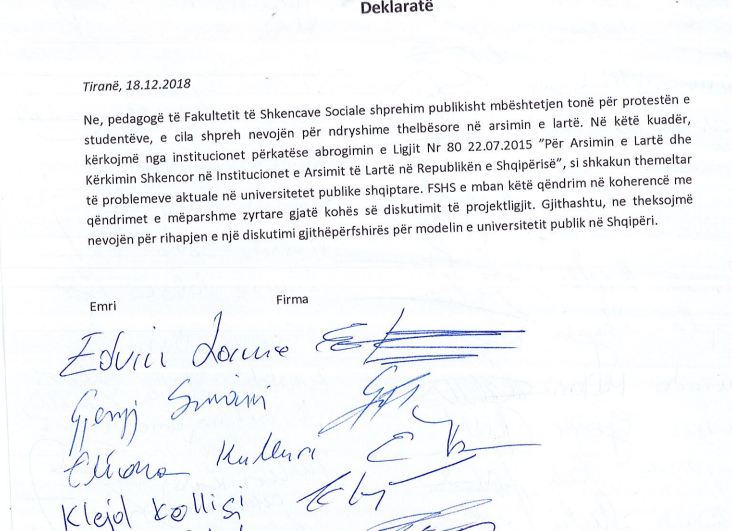 Deklaratë
Tiranë, 18.12.2018
Ne, pedagogë të Fakultetit të Shkencave Sociale shprehim publikisht mbështetjen tonë për protestën e
studentëve, e cila shpreh nevojën për ndryshime thelbësore në arsimin e lartë. Në këtë kuadër,
kërkojmë nga institucionet përkatëse abrogimin e Ligjit Nr 80 22.07.2015 “Për Arsimin e Lartë dhe
Kërkimin Shkencor në Institucionet e Arsimit të Lartë në Republikën e Shqipërisë”, si shkakun themeltar
të problemeve aktuale në universitetet publike shqiptare. FSHS e mban këtë qëndrim në koherencë me
qëndrimet e mëparshme zyrtare gjatë kohës së diskutimit të projektligjit. Gjithashtu, ne theksojmë
nevojën për rihapjen e një diskutimi gjithëpërfshirës për modelin e universitetit publik në Shqipëri.
Emri Firma
Edvin
Klejd Kollisi